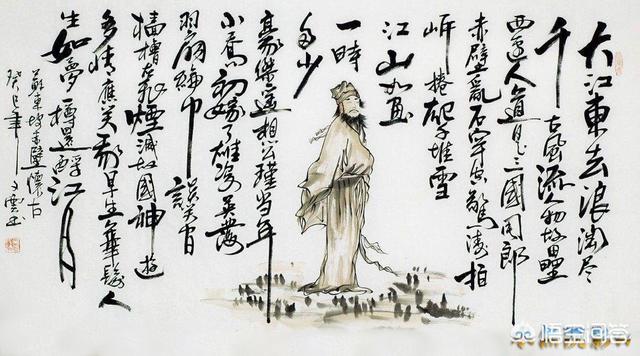 大江東去浪淘尽
千古風流人物故壘
西邊人道是三國周郎
赤壁亂石穿空驚濤拍
岸捲起千堆雪
江山如画
一時
多少
豪傑遥想公瑾當年
小喬初嫁了雄姿英發
羽扇綸巾談笑間
檣櫓灰飛煙滅故國神遊
多情應笑我早生華髮人
生如夢樽還酹江月
蘇東坡赤壁懷古
癸巳年
悟空问答